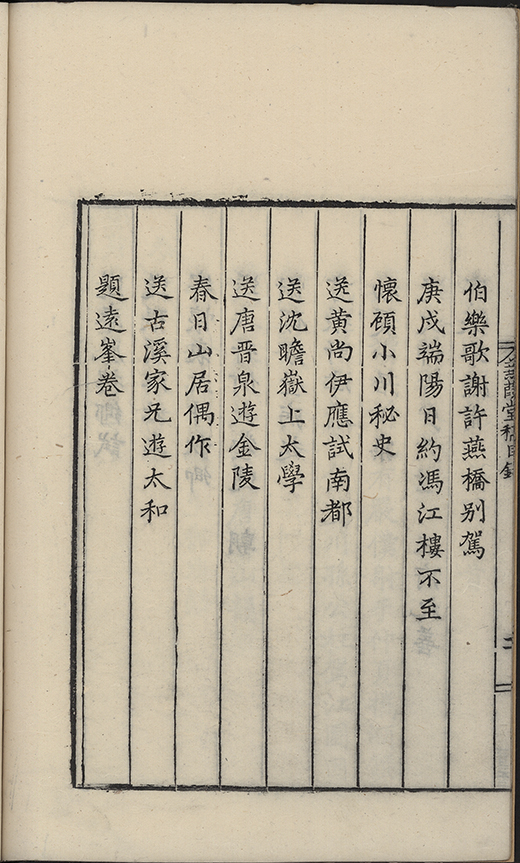 伯樂歌謝許燕橋別駕
庚戌端陽日約馮江樓不至
懷碩小川秘史
送黃尚伊應試南都
送沈瞻嶽上太學
送唐晋泉遊金陵
春日山居偶作
送古溪家兄遊太和
題遠峯卷
堂稿目錄